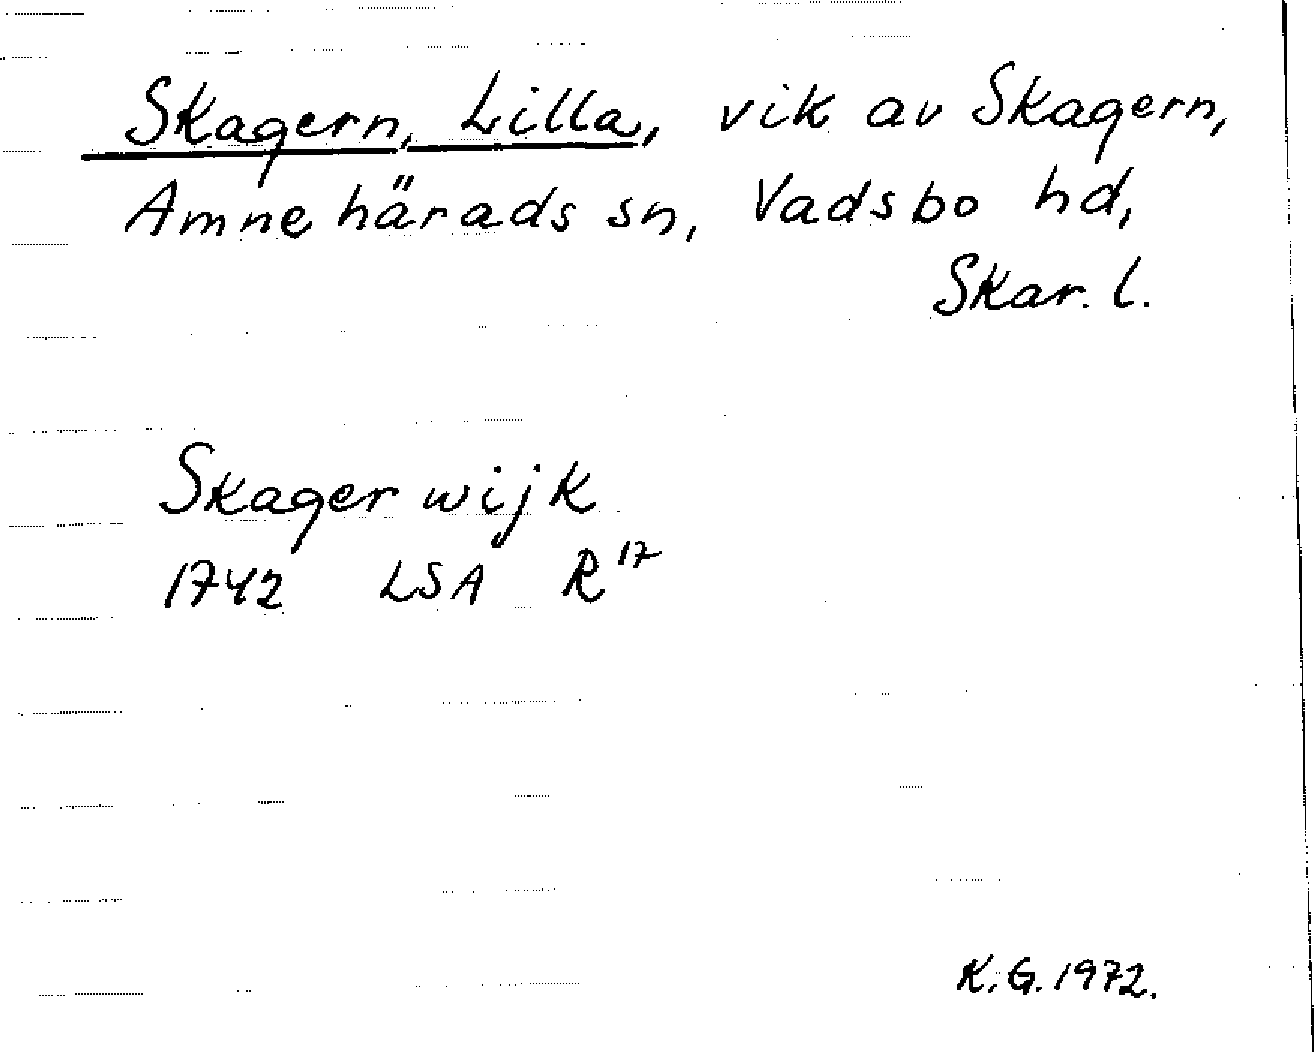 Skagern, Lilla, vik av Skagern,
Amnehärads sn, Vadsbo hd,
Skar. l.
Skagerwijk
1742 LSA R 17
K.G. 1972.